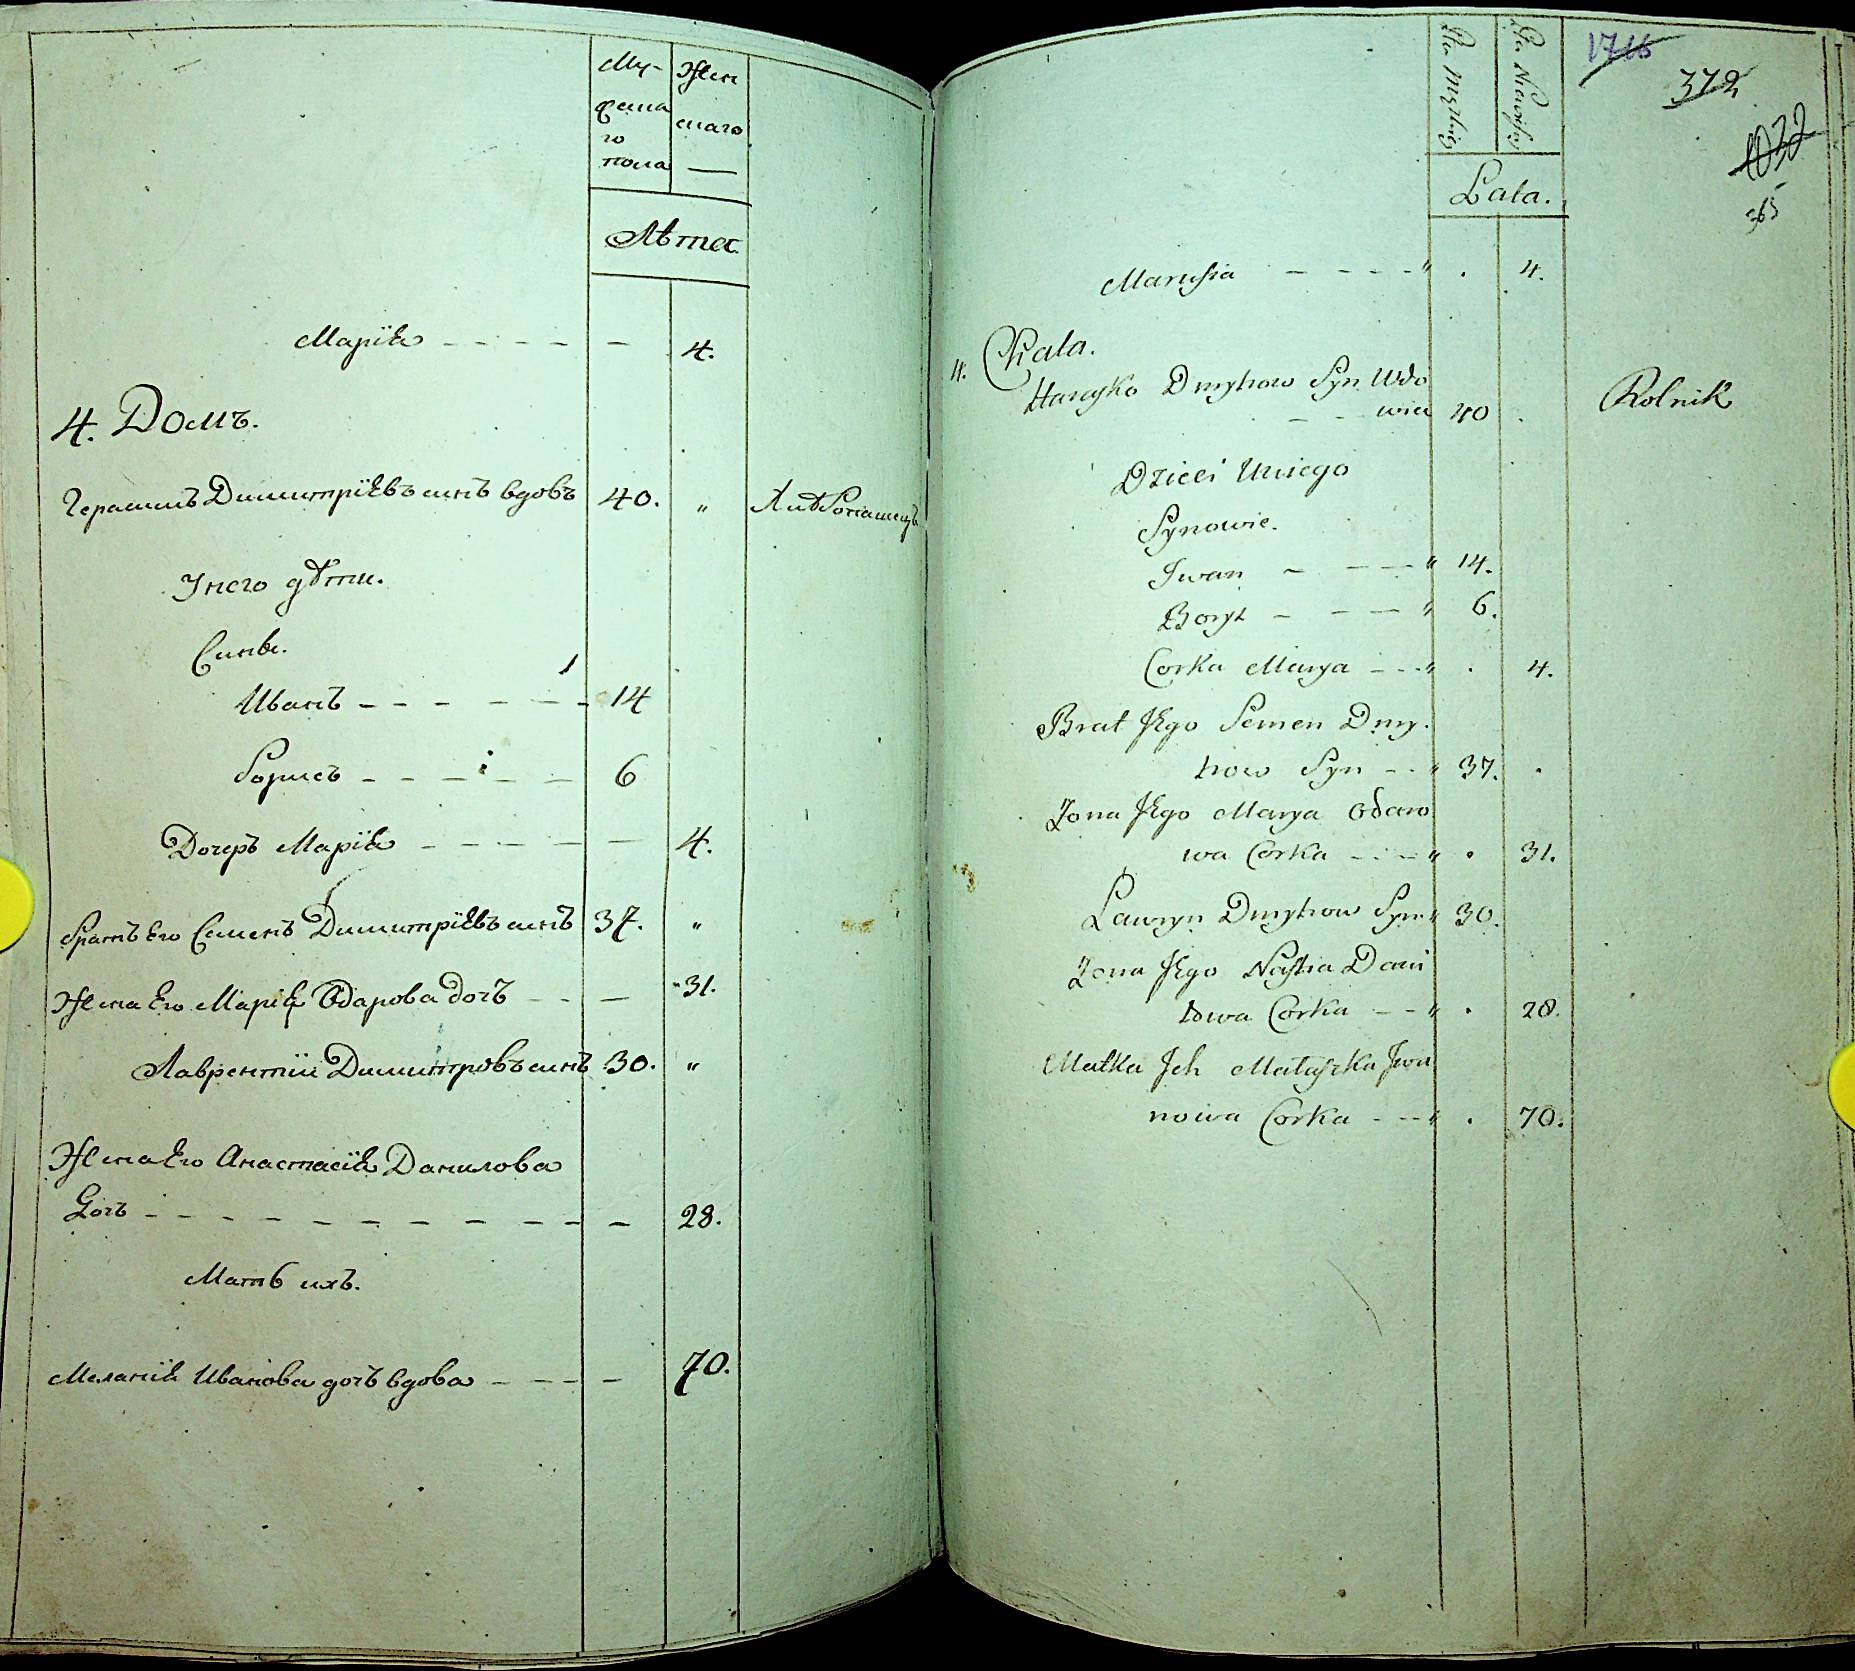 Му-
жеска
го
пола
Жен
скаго
Лѣта
Марія 4.
4. Домъ.
Герасимъ Димитріевъ синъ вдовъ 40. " Хлѣбопашецъ
У него дѣти.
Сины.
Иванъ 14
Борисъ 6
Дочеръ Марія 4.
Братъ Его Семенъ Димитріевъ синъ 37. "
Жена Его Марія Одарова дочъ 31.
Лаврентій Димитровъ синъ 30. "
Жена Его Анастасія Данилова
дочъ 28.
Мать ихъ.
Меланія Иванова дочъ вдова 70.
1716
372
1032
365
Płci Męzkiej
Lata.
Marusia " . 4.
4. Chata.
Harasko Dmytrow Syn Wdo
wiec 40 . Rolnik
Dzieci Uniego
Synowie.
Jwan " 14.
Borys " 6.
Corka Marya " . 4.
Brat Jego Semen Dmy.
trow Syn " 37. .
Zona Jego Marya Odaro
wa Corka " . 31.
Lawryn Dmytrow Syn " 30.
Zona Jego Nastia Dani
łowa Corka " . 28.
Matka Jch Mataszka Jwa
nowa Corka " . 70.